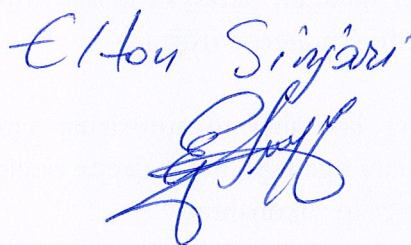 Elton Sinjari